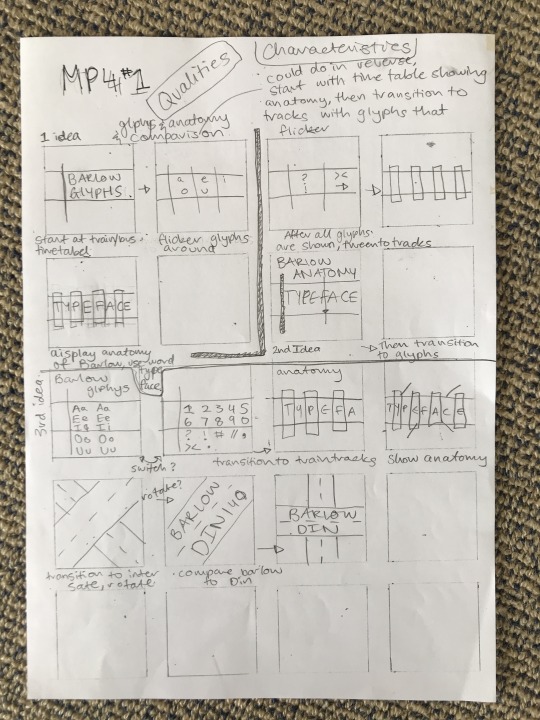 MP4/#1
Qualities
Characteristics
could do in reverse,
start with time table showing
anatomy, then transition to
tracks with glyphs that
flicker
1 idea
glphs & anatomy
& comparision
BARLOW
GLYPHS
a e i
o u
? ><
! →
start at train/bus
timetabel
flicker glyphs
around
After all glyphs
are shown, tween to tracks
TYPEFACE
BARLOW
ANATOMY
TYPEFACE
display anatomy
of Barlow, use word
type
face
2nd Idea
→ Then transition
to glyphs
3rd idea
Barlow
glphys
Aa Aa
Ee Ee
Ii Ii
Oo Oo
Uu Uu
1 2 3 4 5
6 7 8 9 0
? ! # // ,
>< .
anatomy
TYPEFA
TYPEFACE
switch?
transition to traintracks
show anatomy
rotate?
BARLOW
DIN 140
BARLOW
DIN
transition to inter
sate, rotate
compare barlow
to Din